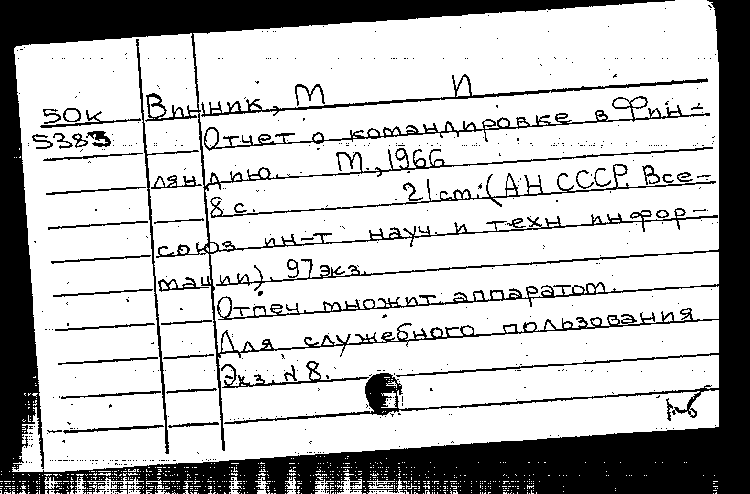 50к Винник, М И
5383 Отчет о командировке в Фин-
ляндию. М., 1966
8 с. 21 см. (АН СССР. Все-
союз ин-т науч. и техн инфор-
мации). 97 экз.
Отпеч. множит. аппаратом.
Для служебного пользования
Экз. № 8.